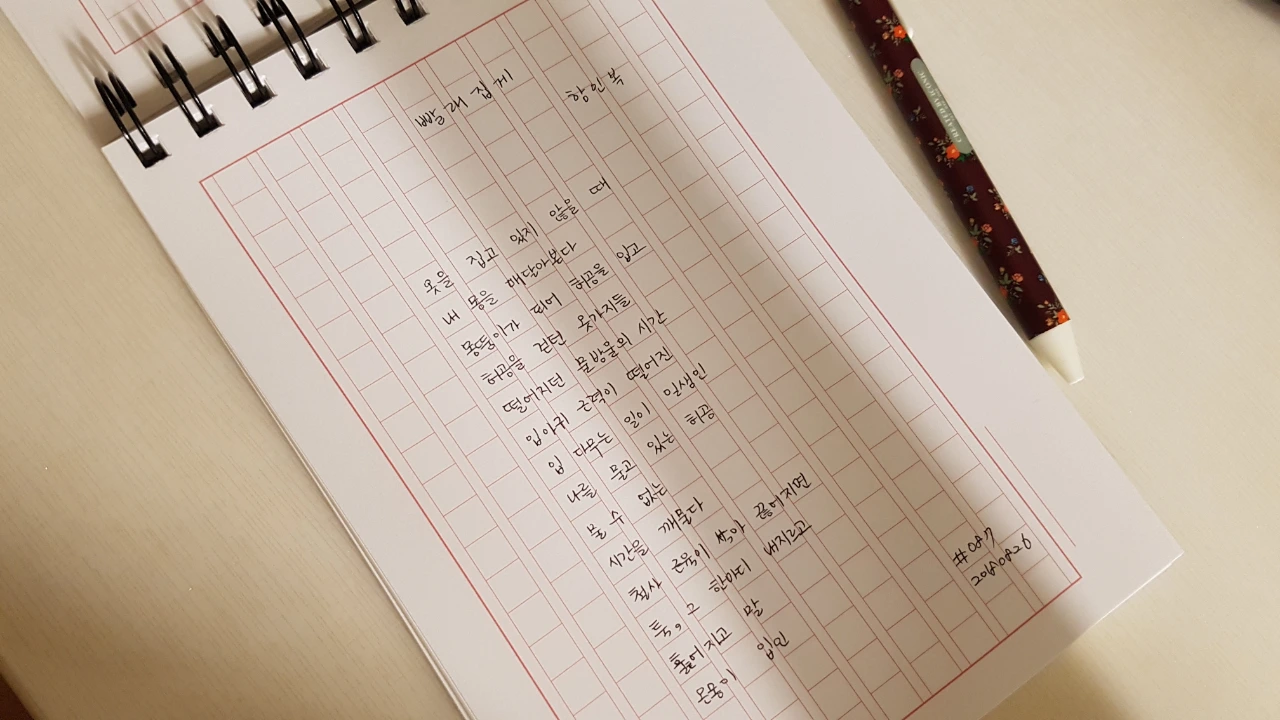 빨래집게
황인복
옷을 집고 있지 않을 때
내 몸을 매달아본다
몽뚱이가 되어 허공을 입고
허공을 걷던 옷가지들
떨어지던 물방울의 시간
입아귀 근력이 떨어진
입 다무는 일이 일생인
나를 물고 있는 허공
물 수 없는
시간을 깨물다
철사 근육이 삭아 끊어지면
툭, 그 한마디 내지르고
흩어지고 말
온몽이 입인
#087
20180826
CREATED BY